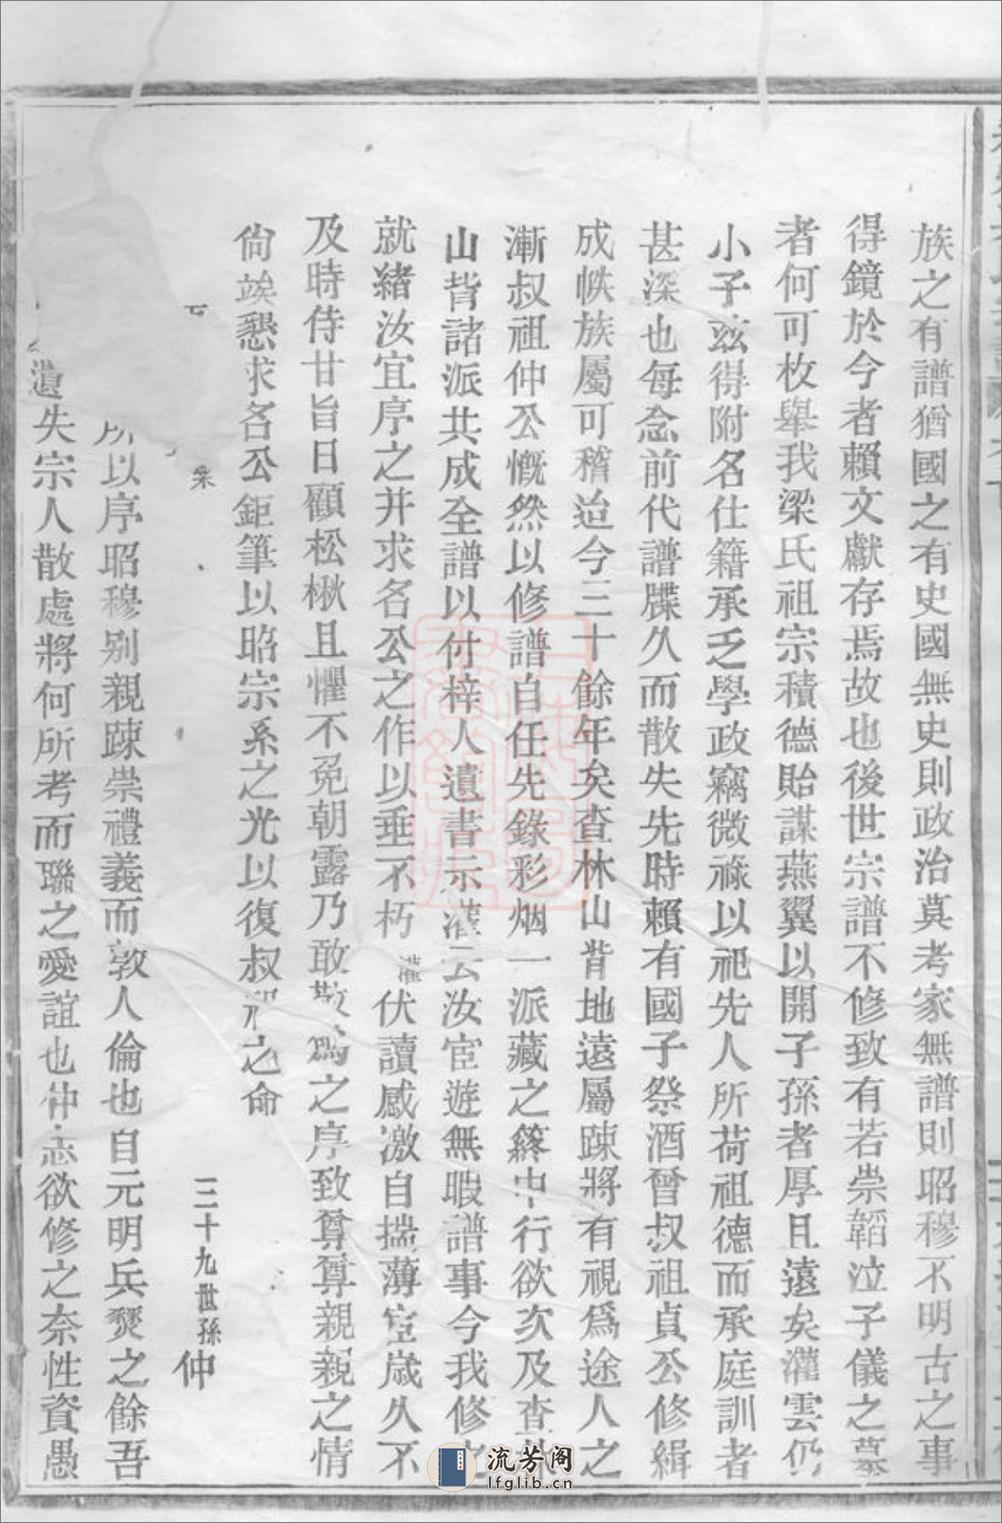 族之有譜猶國之有史國無史則政治莫考家無譜則昭穆不明古之事
得鏡於今者賴文獻存焉故也後世宗譜不修致有若崇韜泣子儀之墓
者何可枚舉我梁氏祖宗積德貽謀燕翼以開子孫者厚且遠矣灌雲仍
小子茲得附名仕籍承乏學政竊微祿以祀先人所荷祖德而承庭訓者
甚深也每念前代譜牒久而散失先時賴有國子祭酒晉叔祖貞公修緝
成帙族屬可稽迨今三十餘年矣查林山背地遠屬踈將有視爲途人之
漸叔祖仲公慨然以修譜自任先錄彩烟一派藏之篋中行欲次及查林
山背諸派共成全譜以付梓人遺書示灌云汝宦遊無暇譜事今我修之
就緒汝宜序之并求名公之作以垂不朽灌伏讀感激自揣薄宦歲久不
及時侍甘旨日顧松楸且懼不免朝露乃敢敬爲之序致尊尊親親之情
尙竢懇求名公鉅筆以昭宗系之光以復叔祖之命
三十九世孫仲
所以序昭穆別親踈崇禮義而敦人倫也自元明兵燹之餘吾
遺失宗人散處將何所考而聯之愛誼也仲志欲修之奈性資愚
流芳阁
lfglib.cn